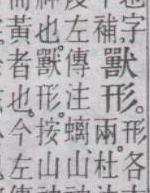 也字
補。
獸形。
形各
兩杜
左傳注螭山
也。獸形。按山
而黃者也。今左